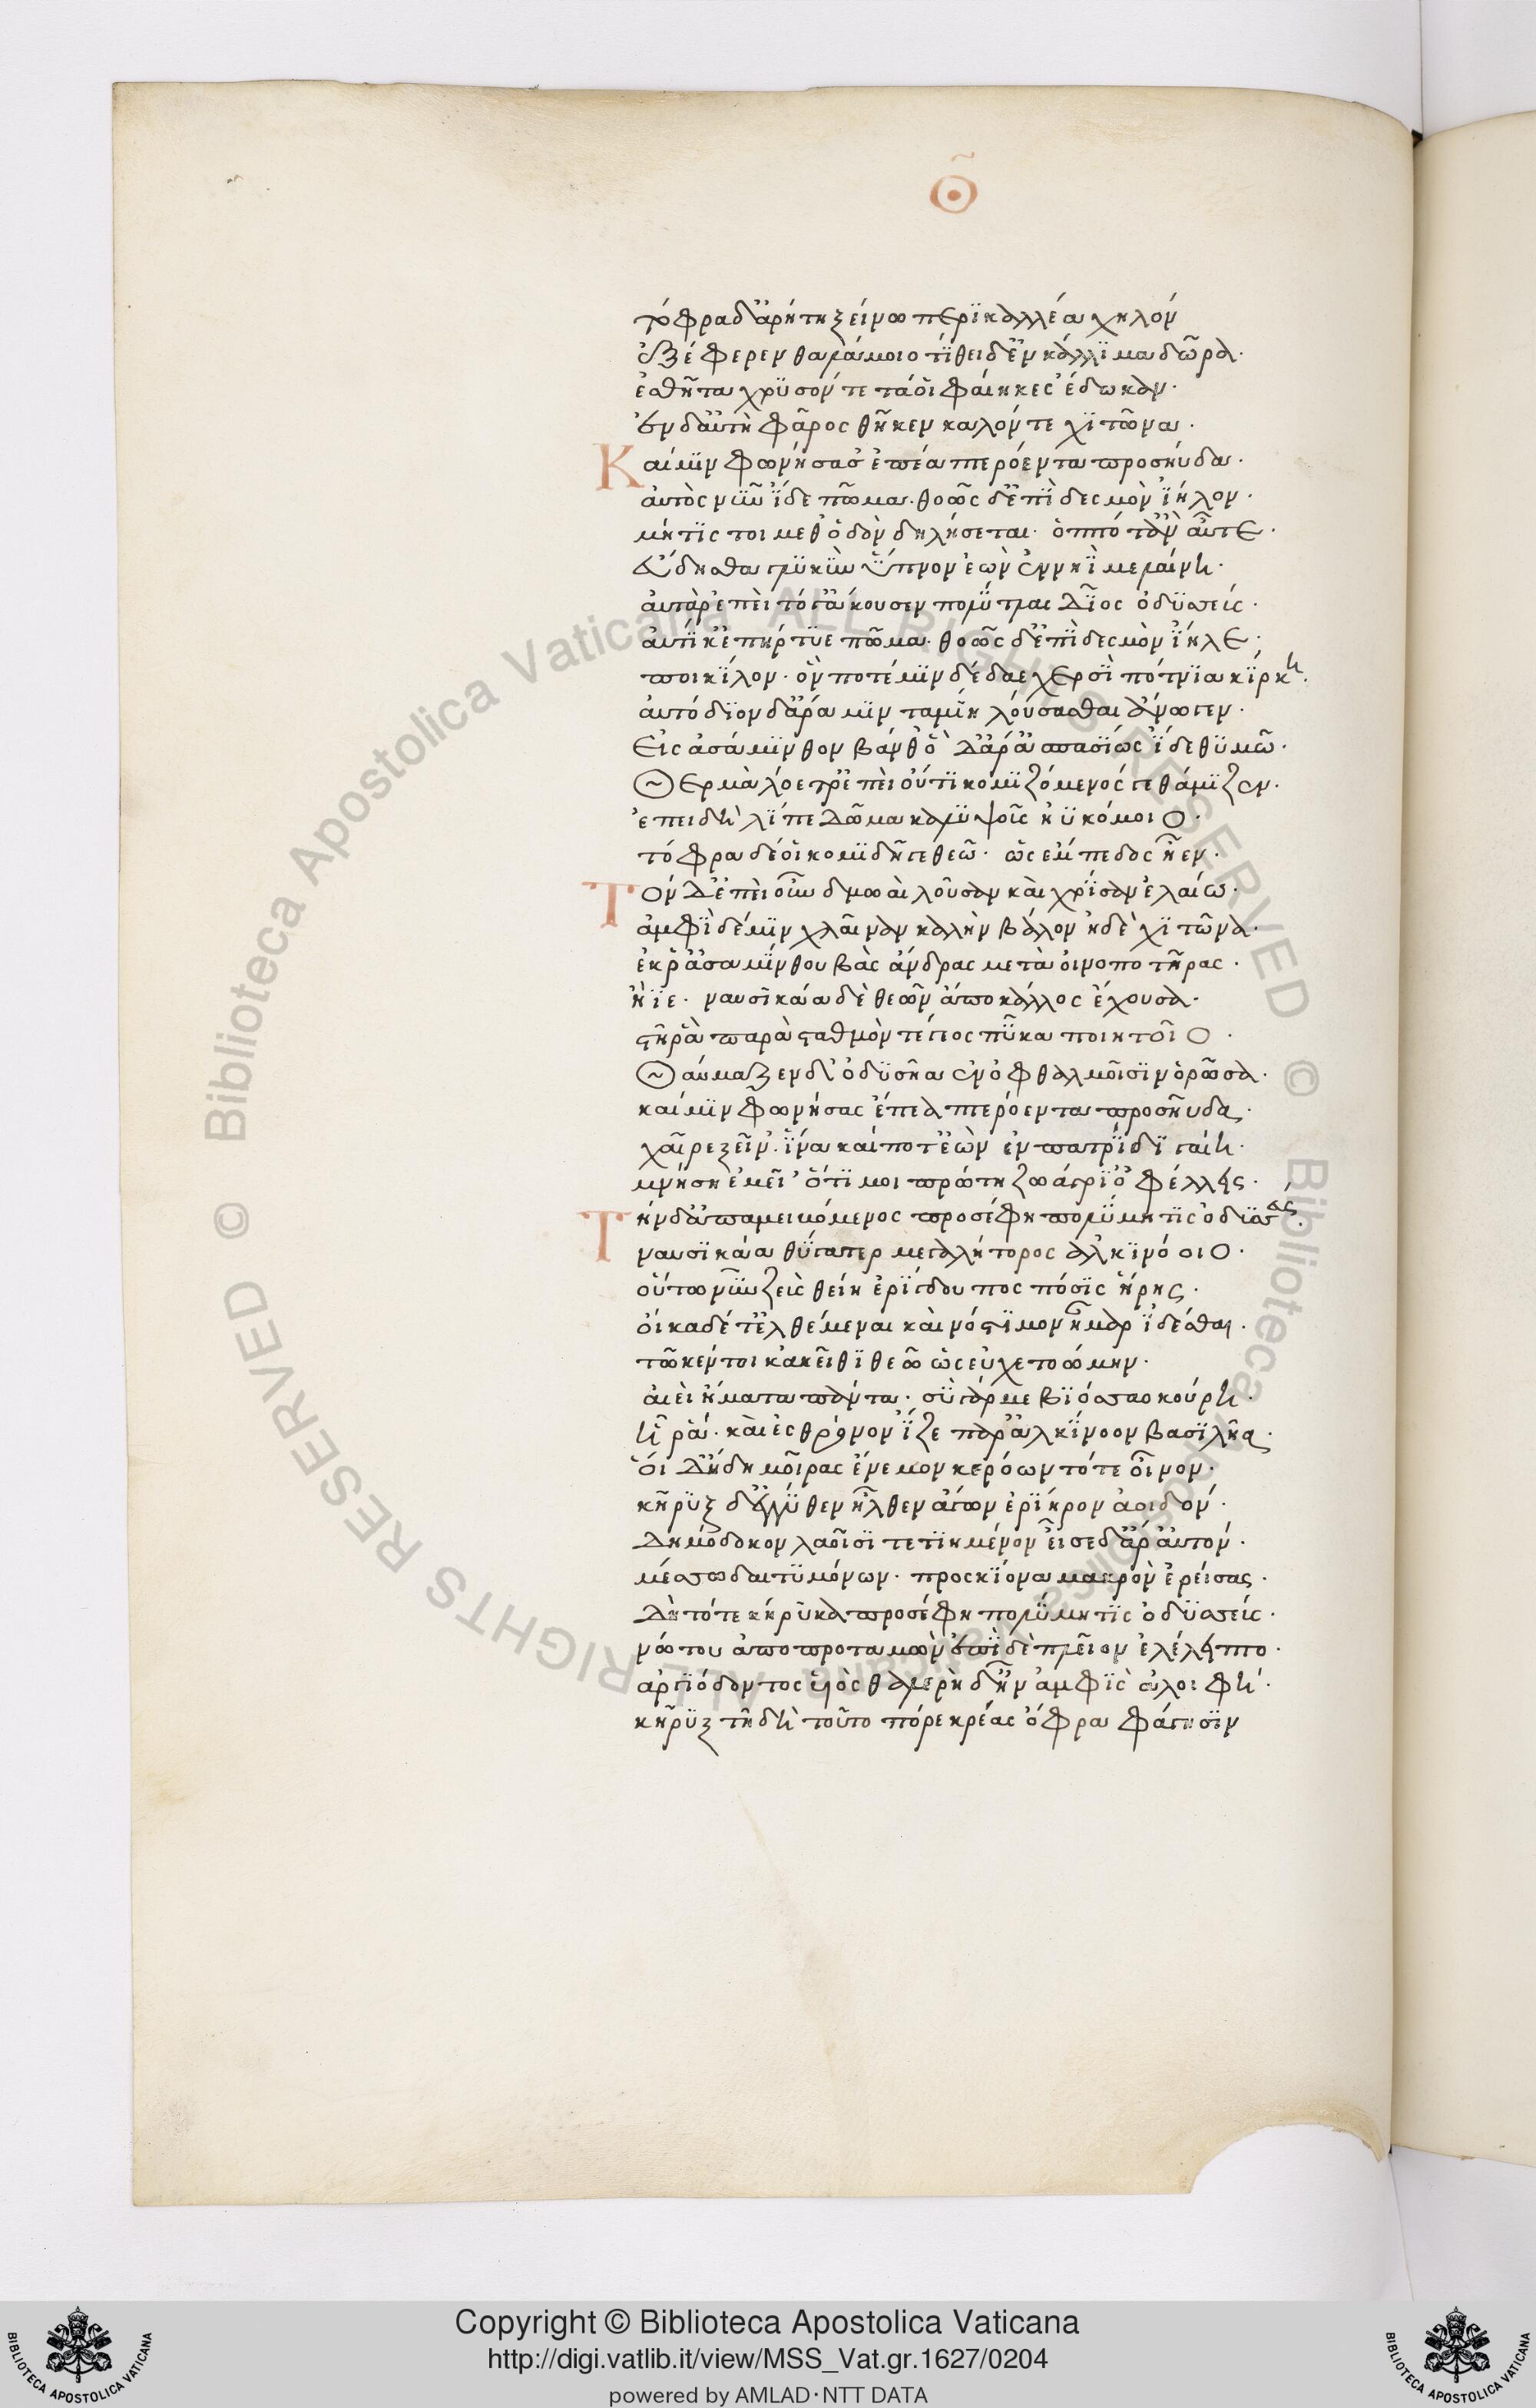 Θ
τόφρα δ' ἄρήτη ξείνω περϊκαλλέα χηλόν
ἐξέφερεν θαλάμοιο τΐθει δ' ἐν κάλλϊμα δῶρα·
ἐσθῆτα χρϋσόν τε τά οἱ φαίηκες ἔδωκαν·
ἐν δ' αὐτὴ φᾶρος θῆκεν καλόν τε χϊτῶνα·
Καί μϊν φωνήσασ' ἔπεα πτερόεντα προσηύδα·
αὐτὸς νῦν ἴδε πῶμα· θοῶς δ' ἐπϊ δεσμὸν ἴηλον·
μήτϊς τοι μεθ' ὁδὸν δηλήσεται· ὁππότ' ἂν αὖτε·
εὕδησθα γλϋκϋν ὕπνον ἐὼν ἐν νηϊ μελαίνη·
αὐτὰρ ἐπεὶ τό γ' ἄκουσεν πολΰτλας δῖος ὀδϋσσεύς·
αὐτΐκ' ἐπήρτϋε πῶμα· θοῶς δ' ἐπϊ δεσμὸν ἴηλε·
ποικΐλον· ὅν ποτέ μϊν δέδαε χερσϊ πότνϊα κΐρκη·
αὐτόδϊον δ' ἄρα μϊν ταμΐη λούσασθαι ἄνωγεν·
εἰς ἀσάμϊνθον βάνθ' ὁ δ' ἄρ' ἀσπασΐως ἴδε θϋμῶ·
Θερμὰ λόετρ' ἐπεὶ οὔτϊ κομϊζόμενός γε θάμϊζεν·
ἐπειδὴ λΐπε δῶμα καλϋψοῖς ἠϋκόμοιο·
τόφρα δέ οἱ κομϊδῆ γε θεῶ· ὣς ἔμπεδος ἦεν·
Τὸν δ' ἐπεὶ οὖν δμωαὶ λοῦσαν καὶ χρῖσαν ἐλαίω·
ἀμφϊ δέ μϊν χλαῖναν καλὴν βάλον ἠδὲ χϊτῶνα·
ἔκ ῥ' ἀσαμΐνθου βὰς ἄνδρας μετὰ οἰνοποτῆρας·
ἤϊε· ναυσϊκάα δὲ θεῶν ἄπο κάλλος ἔχουσα·
στῆ ῥα παρὰ σταθμὸν τέγεος πΰκα ποιητοῖο·
Θαύμαζεν δ' ὀδϋσῆα ἐν ὀφθαλμοῖσϊν ὁρῶσα·
καί μϊν φωνήσας ἔπεα πτερόεντα προσηῦδα·
χαῖρε ξεῖν'· ἵνα καί ποτ' ἐὼν ἐν πατρΐδϊ γαίη·
μνήση ἐμεῖ' ὅτϊ μοι πρώτη ζωάγρϊ' ὀφέλλης·
Τὴν δ' ἀπαμειβόμενος προσέφη πολΰμητϊς ὀδϋσσεύς·
ναυσϊκάα θΰγατερ μεγαλήτορος ἀλκϊνόοιο·
οὕτω νῦν ζεὺς θείη ἐρΐγδουπος πόσϊς ἥρης·
οἴκαδέ τ' ἐλθέμεναι καὶ νόστϊμον ἦμαρ ἰδέσθαι·
τῶ κέν τοι κἀκεῖθϊ θεῶ ὣς εὐχετοώμην·
αἰεὶ ἤματα πάντα· σϋ γάρ με βϊόσσαο κούρη·
ἦ ῥα· καὶ ἐς θρόνον ἵζε παρ' ἀλκΐνοον βασϊλῆα·
οἱ δ' ἤδη μοῖρας ἔνεμον κερόωντό τε οἶνον·
κῆρϋξ δ' ἐγγΰθεν ἦλθεν ἄγων ἐρΐηρον ἀοιδόν·
δημόδοκον λαοῖσϊ τετϊημένον εἷσε δ' ἄρ' αὐτόν·
μέσσω δαιτϋμόνων· πρὸς κΐονα μακρὸν ἐρείσας·
δὴ τότε κήρϋκα προσέφη πολΰμητϊς ὀδϋσσεύς·
νώτου ἀποπροταμὼν ἐπϊ δὲ πλεῖον ἐλέλειπτο·
ἀργϊόδοντος ὑὸς θαλερὴ δ' ἦν ἀμφϊς ἀλοιφή·
κῆρϋξ τῆ δὴ τοῦτο πόρε κρέας ὄφρα φάγησϊν
Copyright © Biblioteca Apostolica Vaticana
http://digi.vatlib.it/view/MSS_Vat.gr.1627/0204
powered by AMLAD·NTT DATA